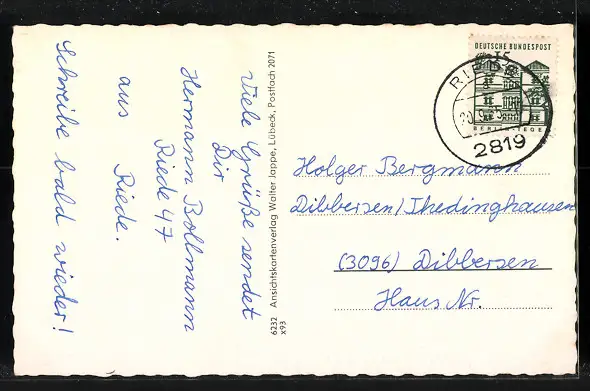 Viele Grüße sendet
Dir
Hermann Bollmann
Riede 47
aus Riede.
Schreibe bald wieder!
6232 Ansichtskartenverlag Walter Jappe, Lübeck, Postfach 2071
x93
DEUTSCHE BUNDESPOST
15
BERLIN-TEGEL
RIEDE
20.9.65
2819
Holger Bergmann
Dibbersen/Thedinghausen
(3096) Dibbersen
Haus Nr.